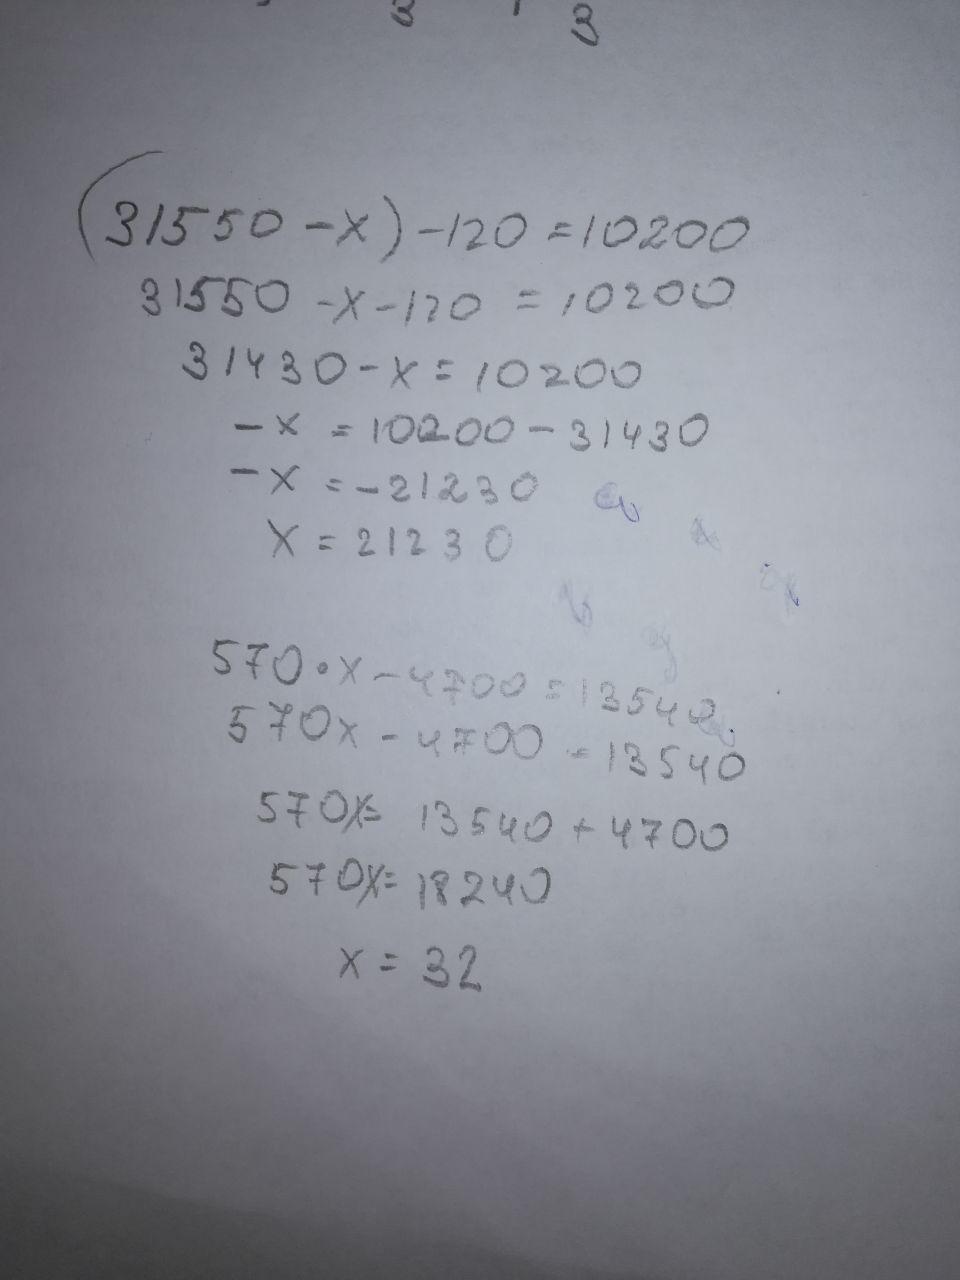 3 3
(31550 - x) - 120 = 10200
31550 - x - 120 = 10200
31430 - x = 10200
- x = 10200 - 31430
- x = -21230
x = 21230
570 • x - 4700 = 13540
570x - 4700 = 13540
570x = 13540 + 4700
570x = 18240
x = 32